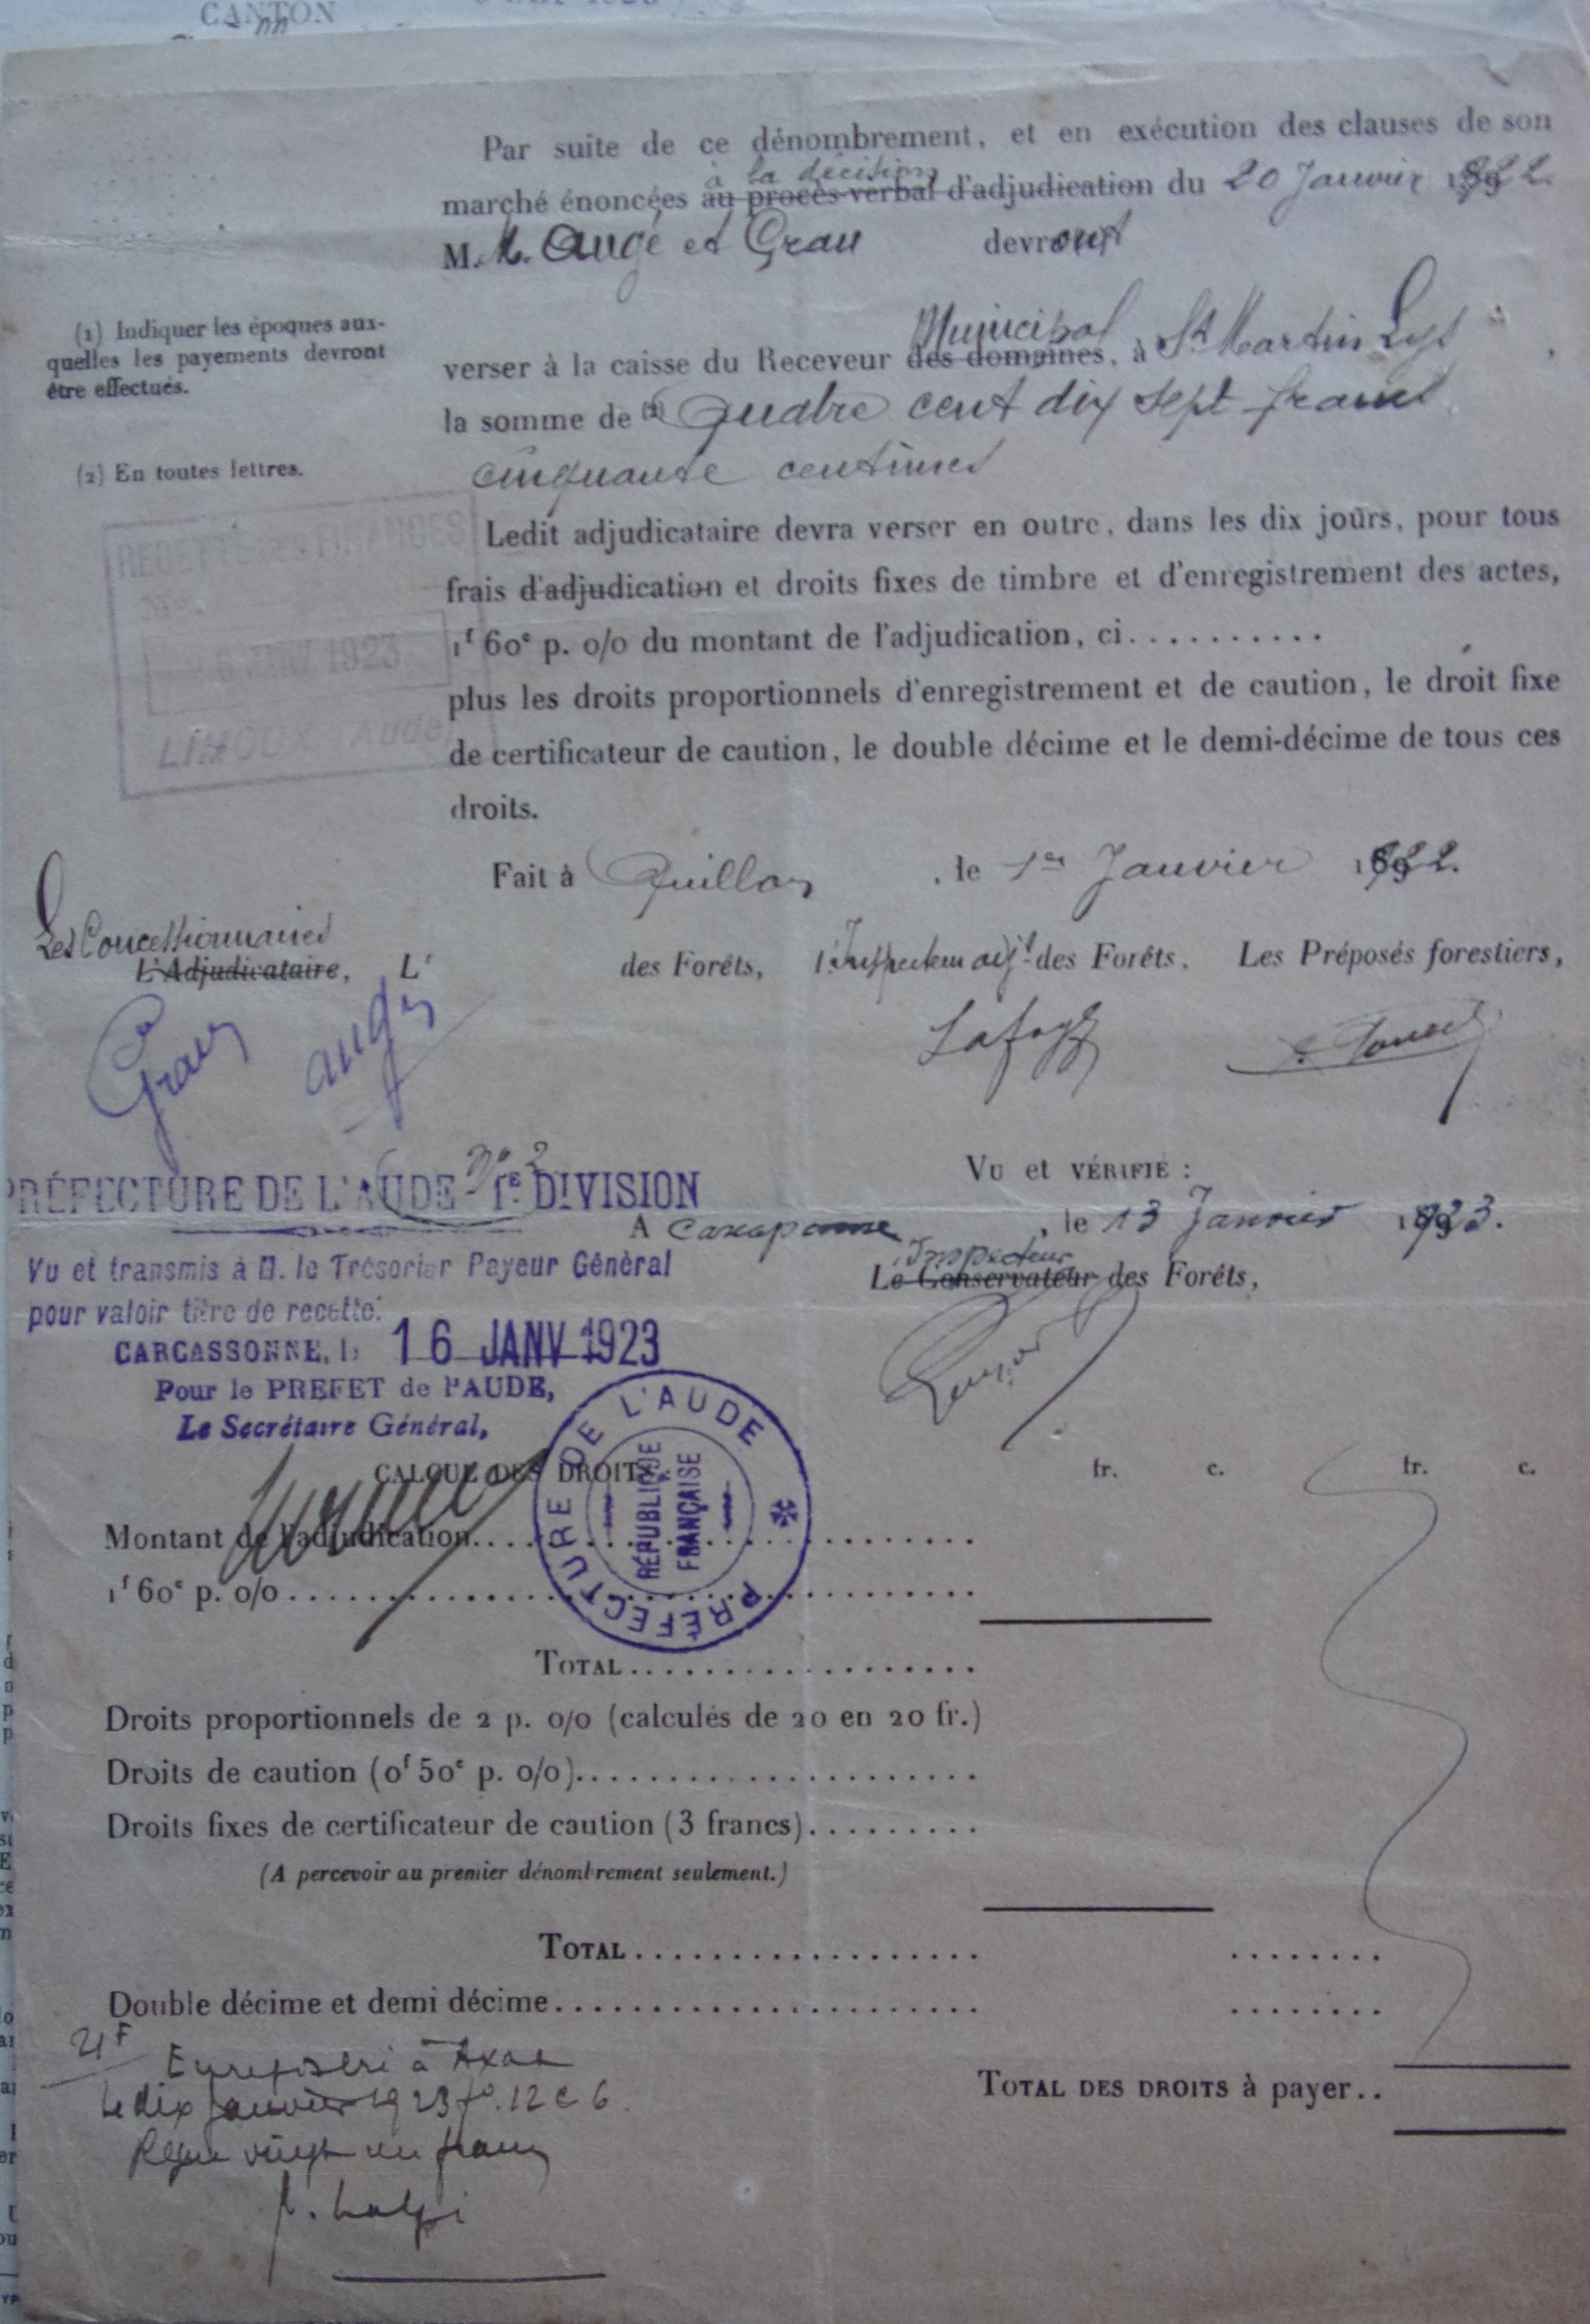 CANTON
Par suite de ce dénombrement, et en exécution des clauses de son
à la décision
marché énoncées au procès-verbal d'adjudication du 20 Janvier 1922.
M. M. Augé et Grau devront
(1) Indiquer les époques aux-
quelles les payements devront
être effectués.
Municipal
verser à la caisse du Receveur des domaines, à St Martin Lys
la somme de (2) Quatre cent dix sept francs
(2) En toutes lettres.
cinquante centimes
RECETTE DES FINANCES
JANV 1923
LIMOUX Aude
Ledit adjudicataire devra verser en outre, dans les dix jours, pour tous
frais d'adjudication et droits fixes de timbre et d'enregistrement des actes,
1f 60c p. 0/0 du montant de l'adjudication, ci..........
plus les droits proportionnels d'enregistrement et de caution, le droit fixe
de certificateur de caution, le double décime et le demi-décime de tous ces
droits.
Fait à Quillan, le 1er Janvier 1922.
Les Concessionnaires
L'Adjudicataire, L' des Forêts, l'Inspecteur adjt des Forêts, Les Préposés forestiers,
Grau Augé
PRÉFECTURE DE L'AUDE - 1e DIVISION
No 2
Vu et transmis à M. le Trésorier Payeur Général
pour valoir titre de recette.
CARCASSONNE, le 16 JANV 1923
Pour le PREFET de l'AUDE,
Le Secrétaire Général,
Vu et vérifié :
A Carcassonne, le 13 Janvier 1923.
Inspecteur
Le Conservateur des Forêts,
PRÉFECTURE DE L'AUDE
RÉPUBLIQUE
FRANÇAISE
CALCUL DES DROITS. fr. c. fr. c.
Montant de l'adjudication........................
1f 60c p. 0/0........................
Total..................
Droits proportionnels de 2 p. 0/0 (calculés de 20 en 20 fr.)
Droits de caution (0f 50c p. 0/0)......................
Droits fixes de certificateur de caution (3 francs).........
(A percevoir au premier dénombrement seulement.)
Total.................. ........
Double décime et demi décime...................... ........
Total des droits à payer..
21F
Enregistré à Axat
Le dix janvier 1923 fo. 12 C 6.
Reçu vingt un francs